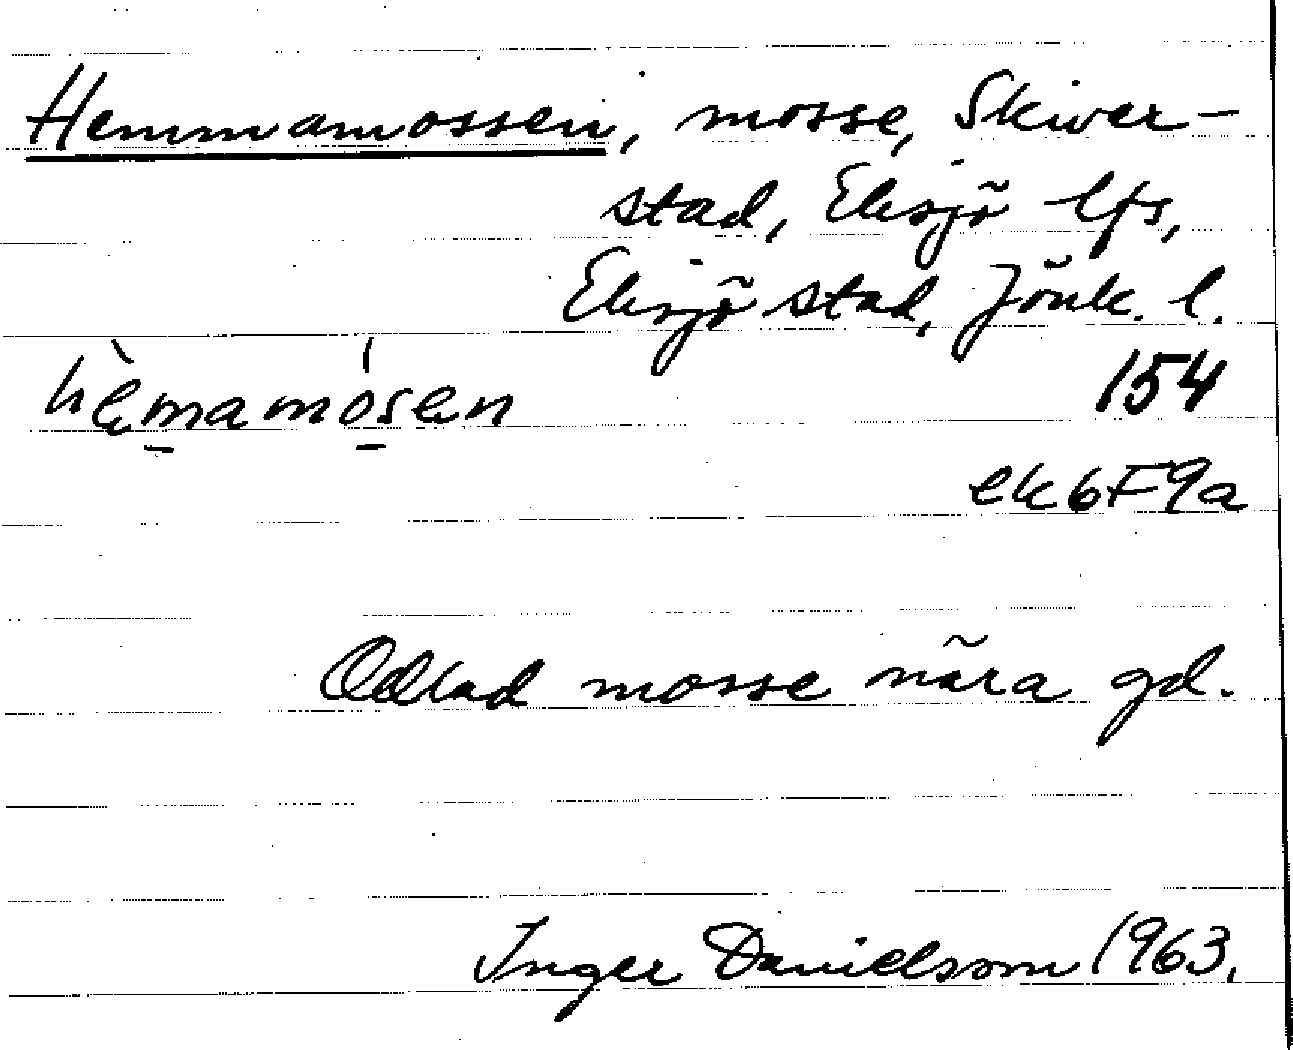 Hemmamossen, mosse, Skiver-
stad, Eksjö lfs,
Eksjö stad, Jönk. l.
hèmamósen 154
ek 6F9a
Odlad mosse nära gd.
Inger Danielsson 1963.